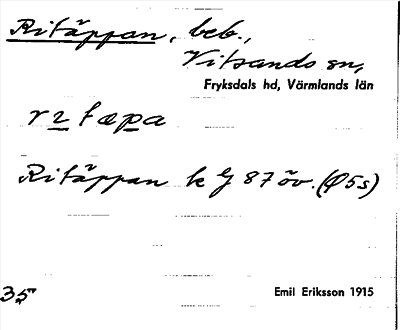 Ritäppan, beb.,
Vitsands sn,
Fryksdals hd, Värmlands län
rɩtæpa
Ritäppan k G 87 öv. (Ø5s)
35
Emil Eriksson 1915